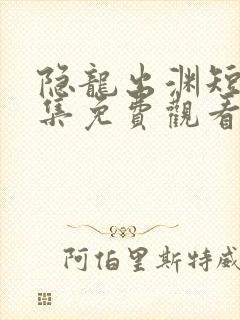 隐龍出渊短
集免費觀看
阿伯里斯特威